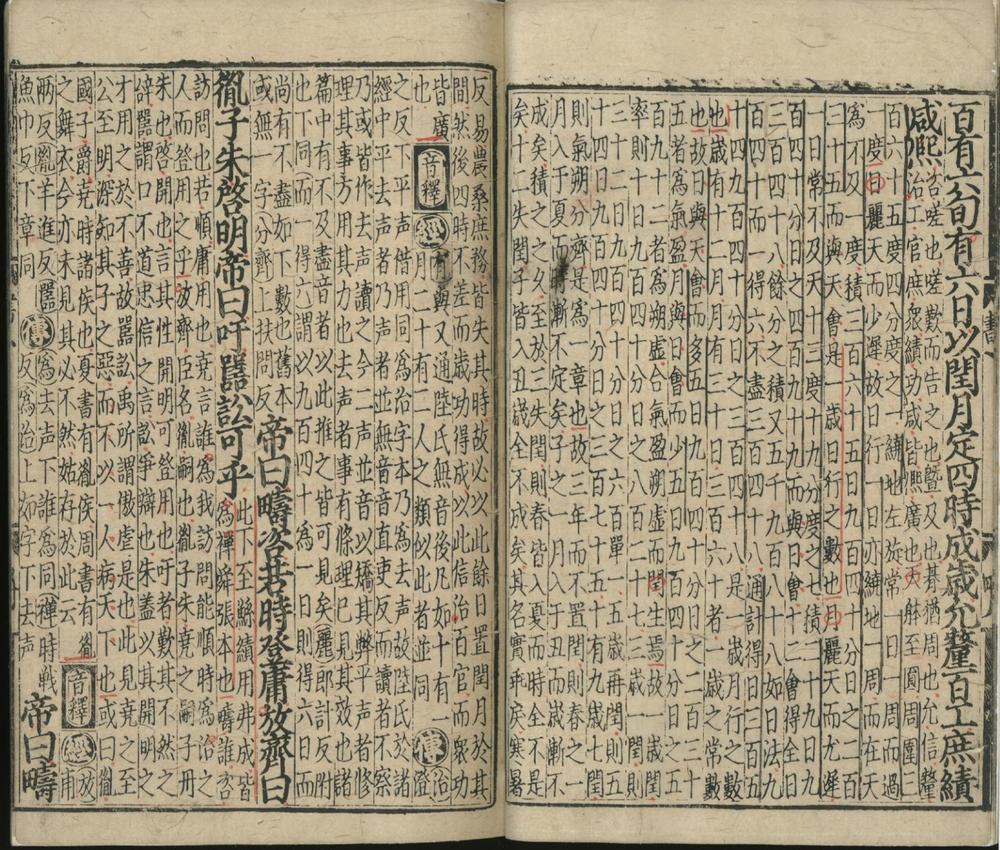 百有六旬有六日以閏月定四時成歲允釐百工庶績
咸熙咨嗟也嗟歎而告之也曁及也朞猶周也允信釐
治工官庶衆績功咸皆熙廣也天軆至圓周圍三
百六十五度四分度之一繞地左旋常一日一周而過
一度日麗天而少遲故日行一日亦繞地一周而在天
為不及一度積三百六十五日九百四十分日之二百
三十五而與天會是一歲日行之數也月麗天而尤遲
一日常不及天十三度十九分度之七積二十九日九
百四十分日之四百九十九而與日會十二會得全日
三百四十八餘分之積又五千九百八十八如日法九
百四十而一得六不盡三百四十八通計得日三百五
十四九百四十分日之三百四十八是一歲月行之數
也歲有十二月月有三十日三百六十者一歲之常數
也故日與天會而多五日九百四十分日之二百三十
五者為氣盈月與日會而少五日九百四十分日之五
百九十二者為朔虛合氣盈朔虛而閏生焉故一歲閏
率則十日九百四十分日之八百二十七三歲一閏則
三十二日九百四十分日之六百單一五歲再閏則五
十四日九百四十分日之三百七十五十有九歲七閏
則氣朔分齊是為一章也故三年而不置閏則春之一
月入于夏而時漸不定矣子之一月入于丑而歲漸不
成矣積之之久至於三失閏則春皆入夏而時全不定
矣十二失閏子皆入丑歲全不成矣其名實乖戾寒暑
反易農桑庶務皆失其時故必以此餘日置閏月於其
間然後四時不差而歲功得成以此信治百官而衆功
皆廣
也
音釋
經
有與又通陸氏無音後凡如十有一
月二十有二人之類似此者並同
傳
治澄
之反下平声借用同為治字本乃為去声故陸氏於諸
經中去声者乃無音平声者並音直吏反而讀者不察
乃或皆作去声讀之今二声並音以矯其弊平声者修
理其事方用其力也去声者事有條理已見其效也諸
篇中有不及盡音者以此推之皆可見矣麗郎計反附
也下同而一得六謂以九百四十為一則得六日而
尚有不盡如下數也舊本
或無一字分齊上扶問反
帝曰疇咨若時登庸放齊曰
胤子朱啓明帝曰吁嚚訟可乎
此下至鯀績用弗成皆
為禪舜張本也疇誰咨
訪問也若順庸用也堯言誰為我訪問能順時為治之
人而登用之乎放齊臣名胤嗣也胤子朱堯之嗣子丹
朱也啓開也言其性開明可登用也吁者歎其不然之
辭嚚謂口不道忠信之言訟爭辯也朱蓋以其開明之
才用之於不善故嚚訟禹所謂傲虐是也此見堯之至
公至明深知其子之惡而不以一人病天下也或曰胤
國子爵堯時諸侯也夏書有胤侯周書有胤
之舞衣今亦未見其必不然姑存於此云
音釋
經
放甫
兩反胤羊進反嚚
魚巾反下章同
傳
為去声下誰為同禪時戰
反為治上如字下去声
帝曰疇